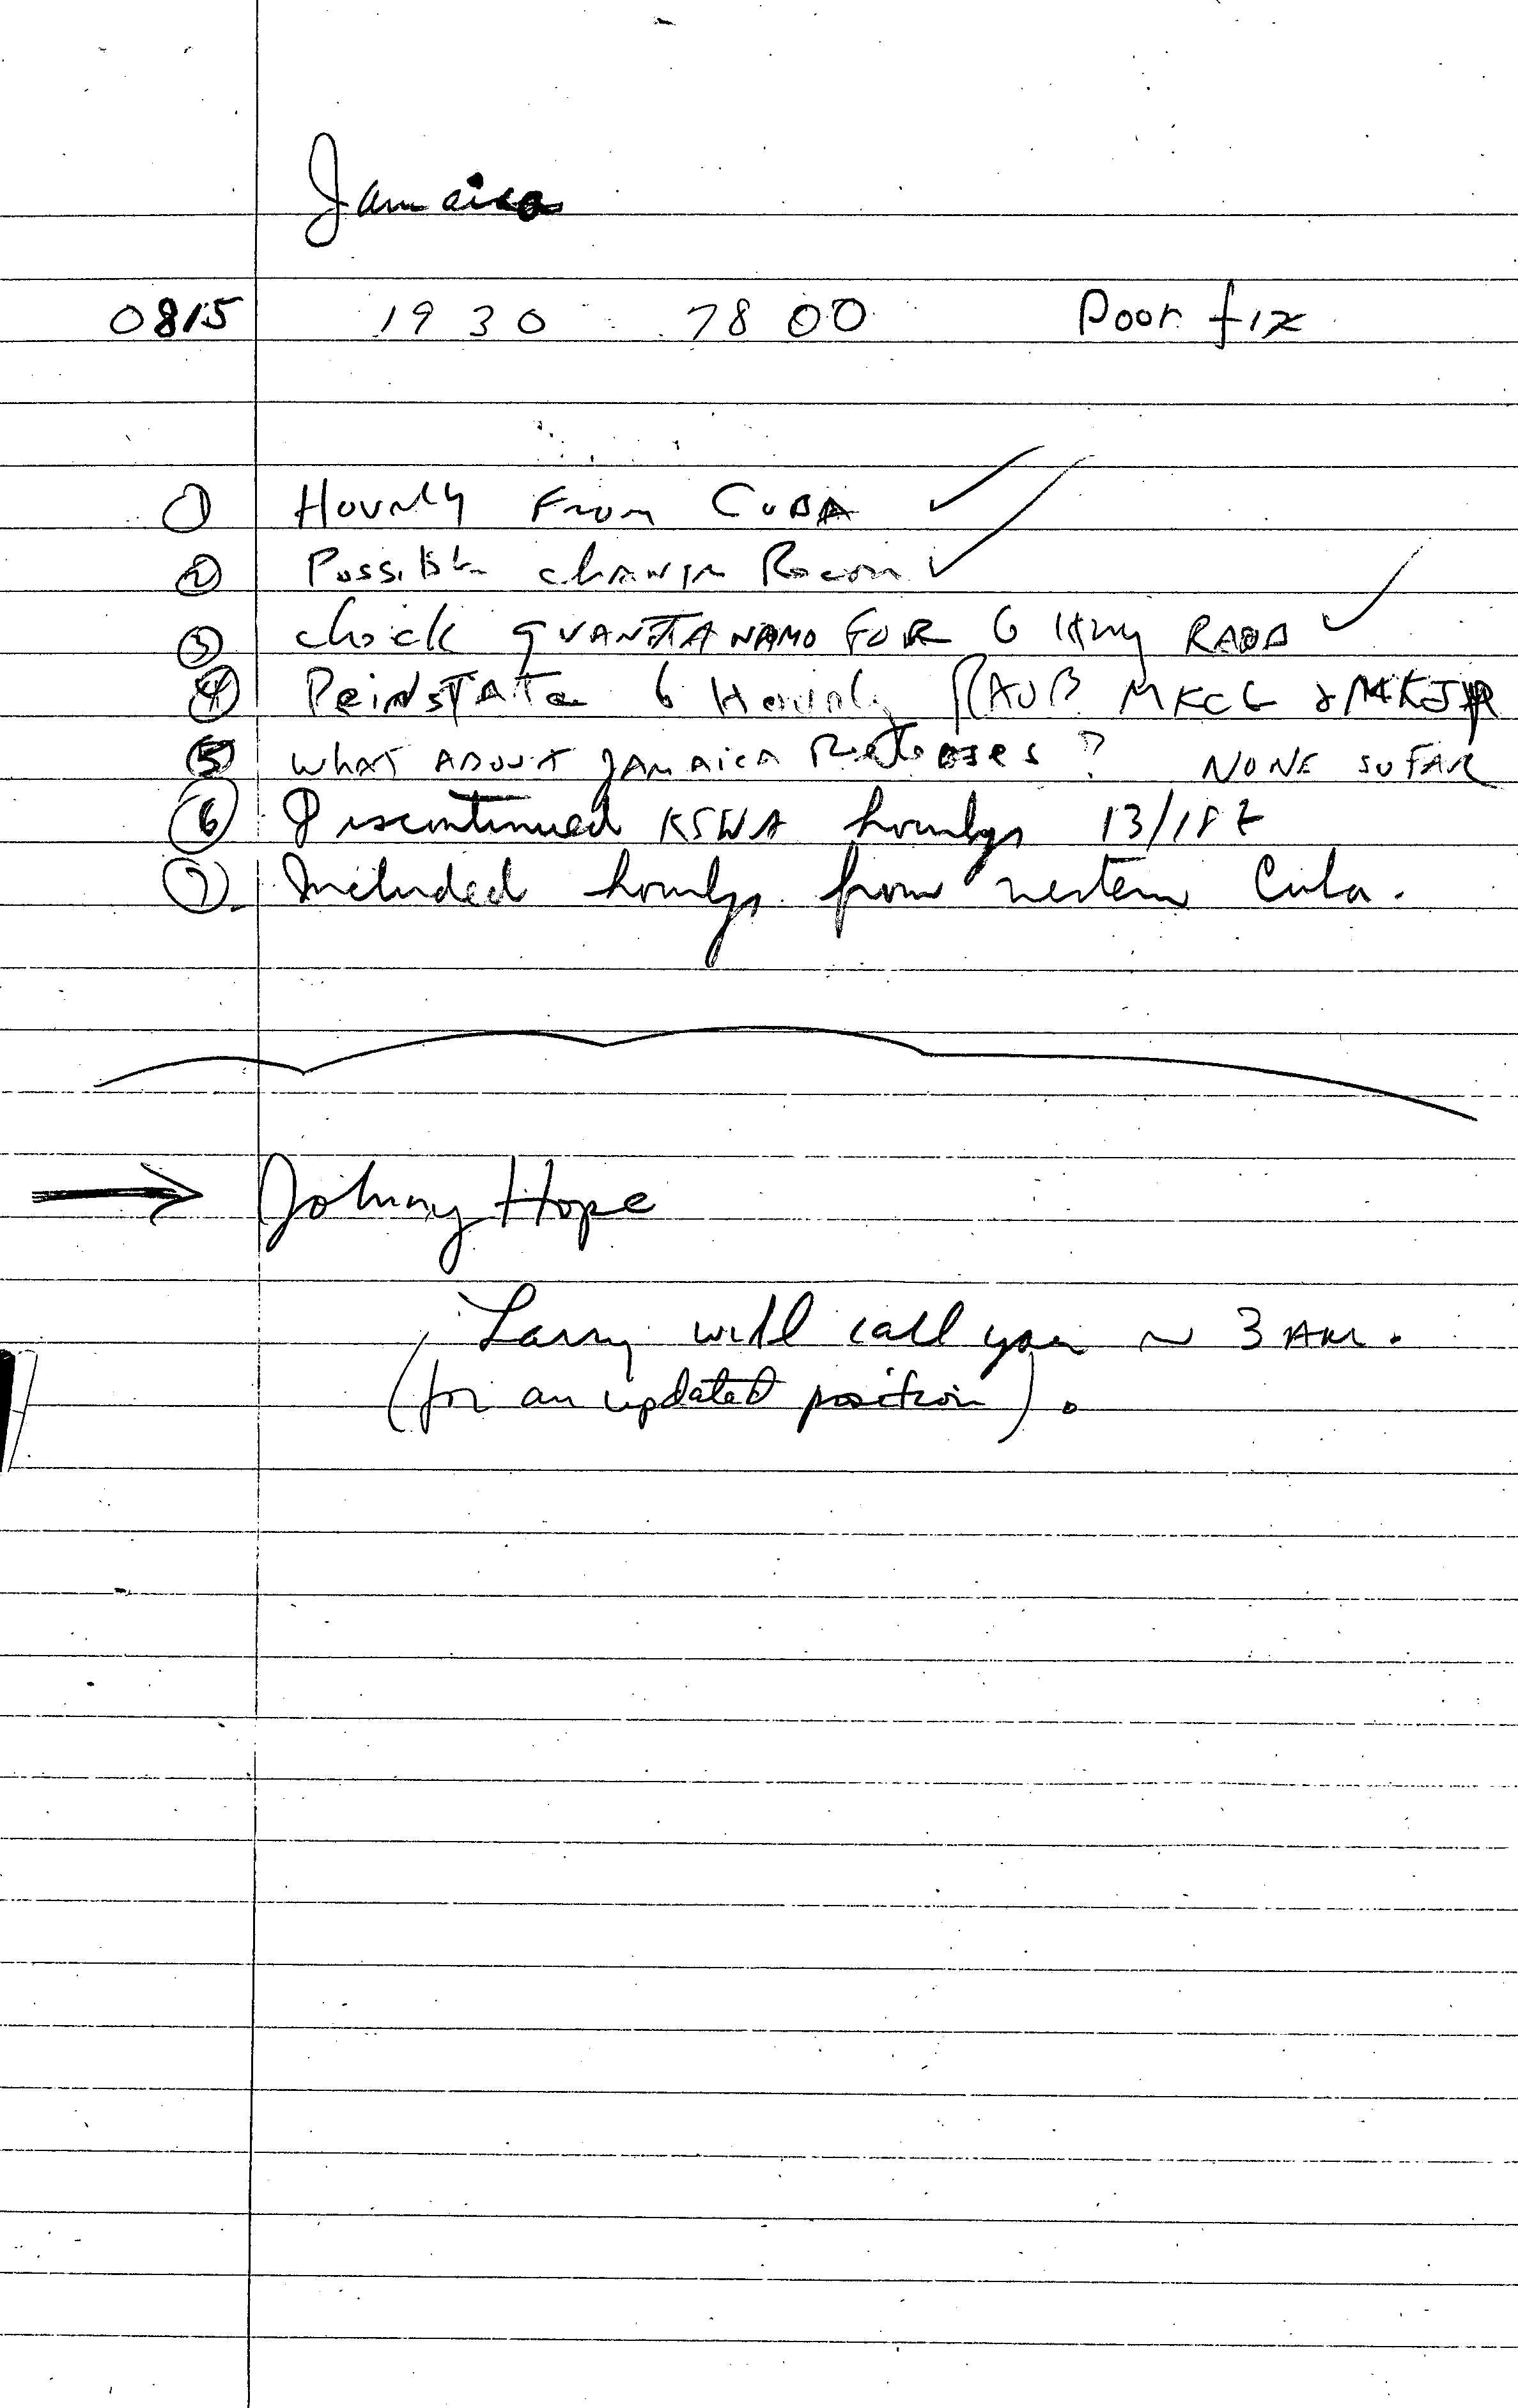 Jamaica
0815 1930 7800 Poor fix
① Hourly From CUBA ✓
② Possible change Recon ✓
③ check GUANTANAMO FOR 6 Hrly RAOB ✓
④ ReinSTATe 6 Hourly RAOB MKCG & MKJP
⑤ WHAT ABOUT JAMAICA Releases? NONE SO FAR
⑥ Discontinued KSWA hourlys 13/18Z
⑦ Included hourlys from western Cuba.
→ Johnny Hope
Larry will call you ~ 3 AM.
(for an updated position).